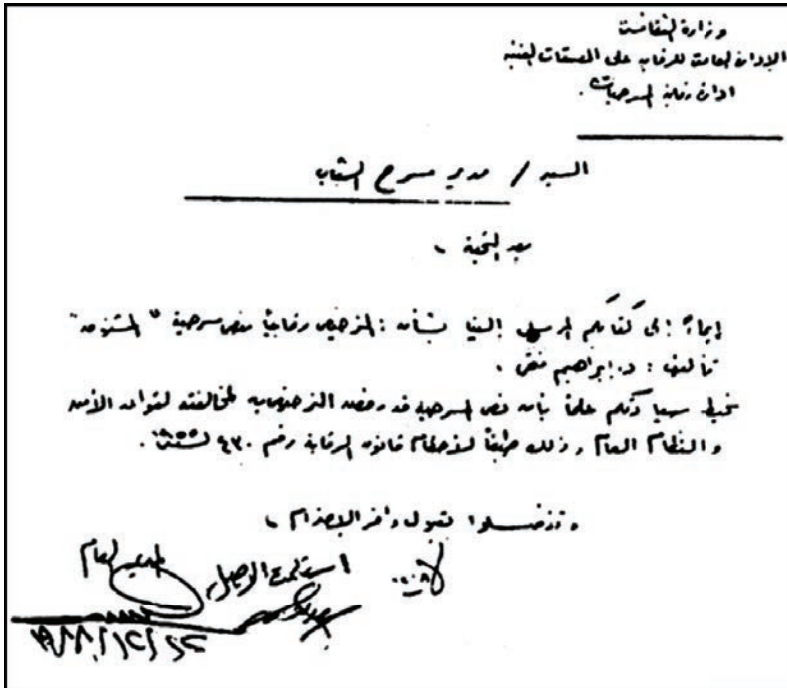 وزارة الثقافة
الإدارة العامة للرقابة على المصنفات الفنية
ادارة رقابة المسرحيات.
السيد / مدير مسرح الشباب
بعد التحية ،
إيماءً إلى كتابكم المرسل إلينا بشأن : الترخيص رقابياً بنص مسرحية "
تأليف : د. إبراهيم
نحيط سيادتكم علماً بأن نص المسرحية قد رفض الترخيص به لمخالفته لقواعد الأمن
والنظام العام ، وذلك طبقاً لأحكام قانون الرقابة رقم ٤٣٠ لسنة
وتفضلوا بقبول وافر الاحترام ،
المدير العام
استلمت الأصل
١٩٨٨/١٢/